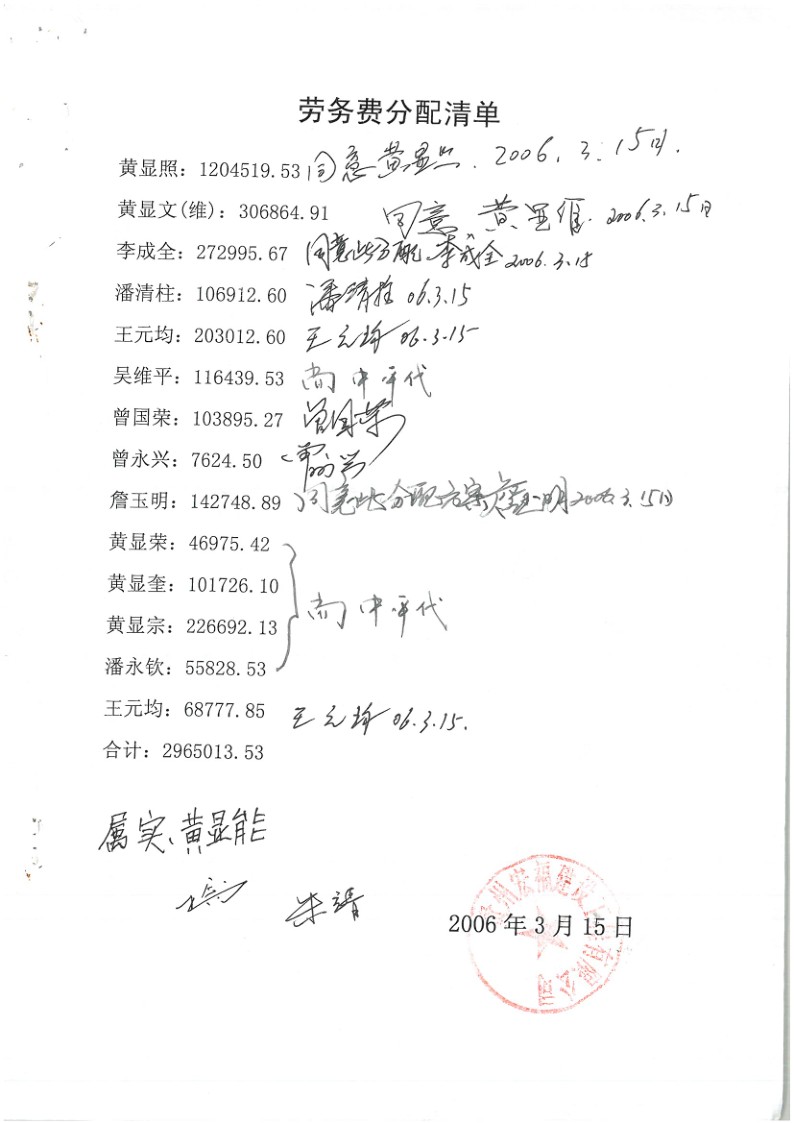 劳务费分配清单
黄显照：1204519.53 同意 黄显照. 2006. 3. 15日.
黄显文(维)：306864.91 同意 黄显维. 2006.3.15日
李成全：272995.67 同意此分配 李成全 2006.3.15
潘清柱：106912.60 潘清柱 06.3.15
王元均：203012.60 王元均 06.3.15
吴维平：116439.53 尚中平代
曾国荣：103895.27 曾国荣
曾永兴：7624.50
詹玉明：142748.89 同意此分配方案 詹玉明 2006.3.15日
黄显荣：46975.42
黄显奎：101726.10
黄显宗：226692.13 尚中平代
潘永钦：55828.53
王元均：68777.85 王元均 06.3.15.
合计：2965013.53
属实、黄显能
朱靖
2006年3月15日
州宏福建设工程有限公司